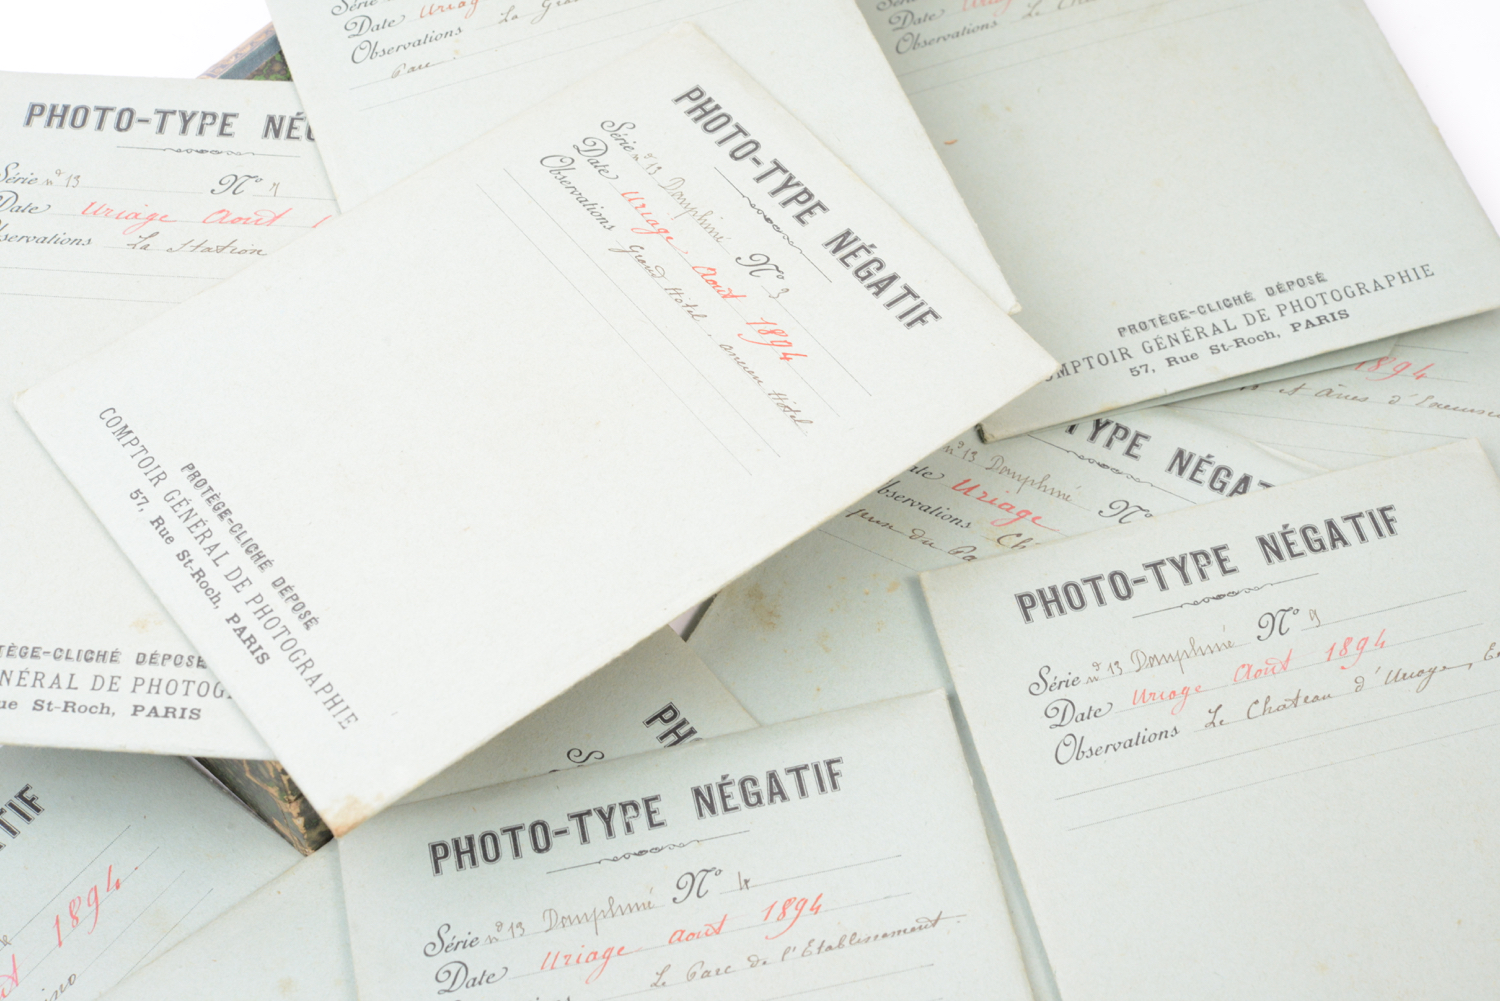 Série
Date Uriage
Observations La
Parc.
Date
Observations Le
PROTÈGE-CLICHÉ DÉPOSÉ
COMPTOIR GÉNÉRAL DE PHOTOGRAPHIE
57, Rue St-Roch, PARIS
PHOTO-TYPE NÉG
Série nº 13 Nº
Date Uriage Août 1
Observations La Station
PROTÈGE-CLICHÉ DÉPOSÉ
NÉRAL DE PHOTOG
ue St-Roch, PARIS
PHOTO-TYPE NÉGATIF
Série nº 13 Dauphiné Nº 3
Date Uriage Août 1894
Observations Grand Hôtel. ancien Hôtel
PROTÈGE-CLICHÉ DÉPOSÉ
COMPTOIR GÉNÉRAL DE PHOTOGRAPHIE
57, Rue St-Roch, PARIS
1894
TYPE NÉGA
nº 13 Dauphiné Nº
ate Uriage
bservations Ch
du Pa
PHOTO-TYPE NÉGATIF
Série nº 13 Dauphiné Nº 9
Date Uriage Août 1894
Observations Le Chateau d'Uriage,
PH
S
PHOTO-TYPE NÉGATIF
Série nº 13 Dauphiné Nº 4
Date Uriage Août 1894
Le Parc de l'Etablissement.
TIF
1894